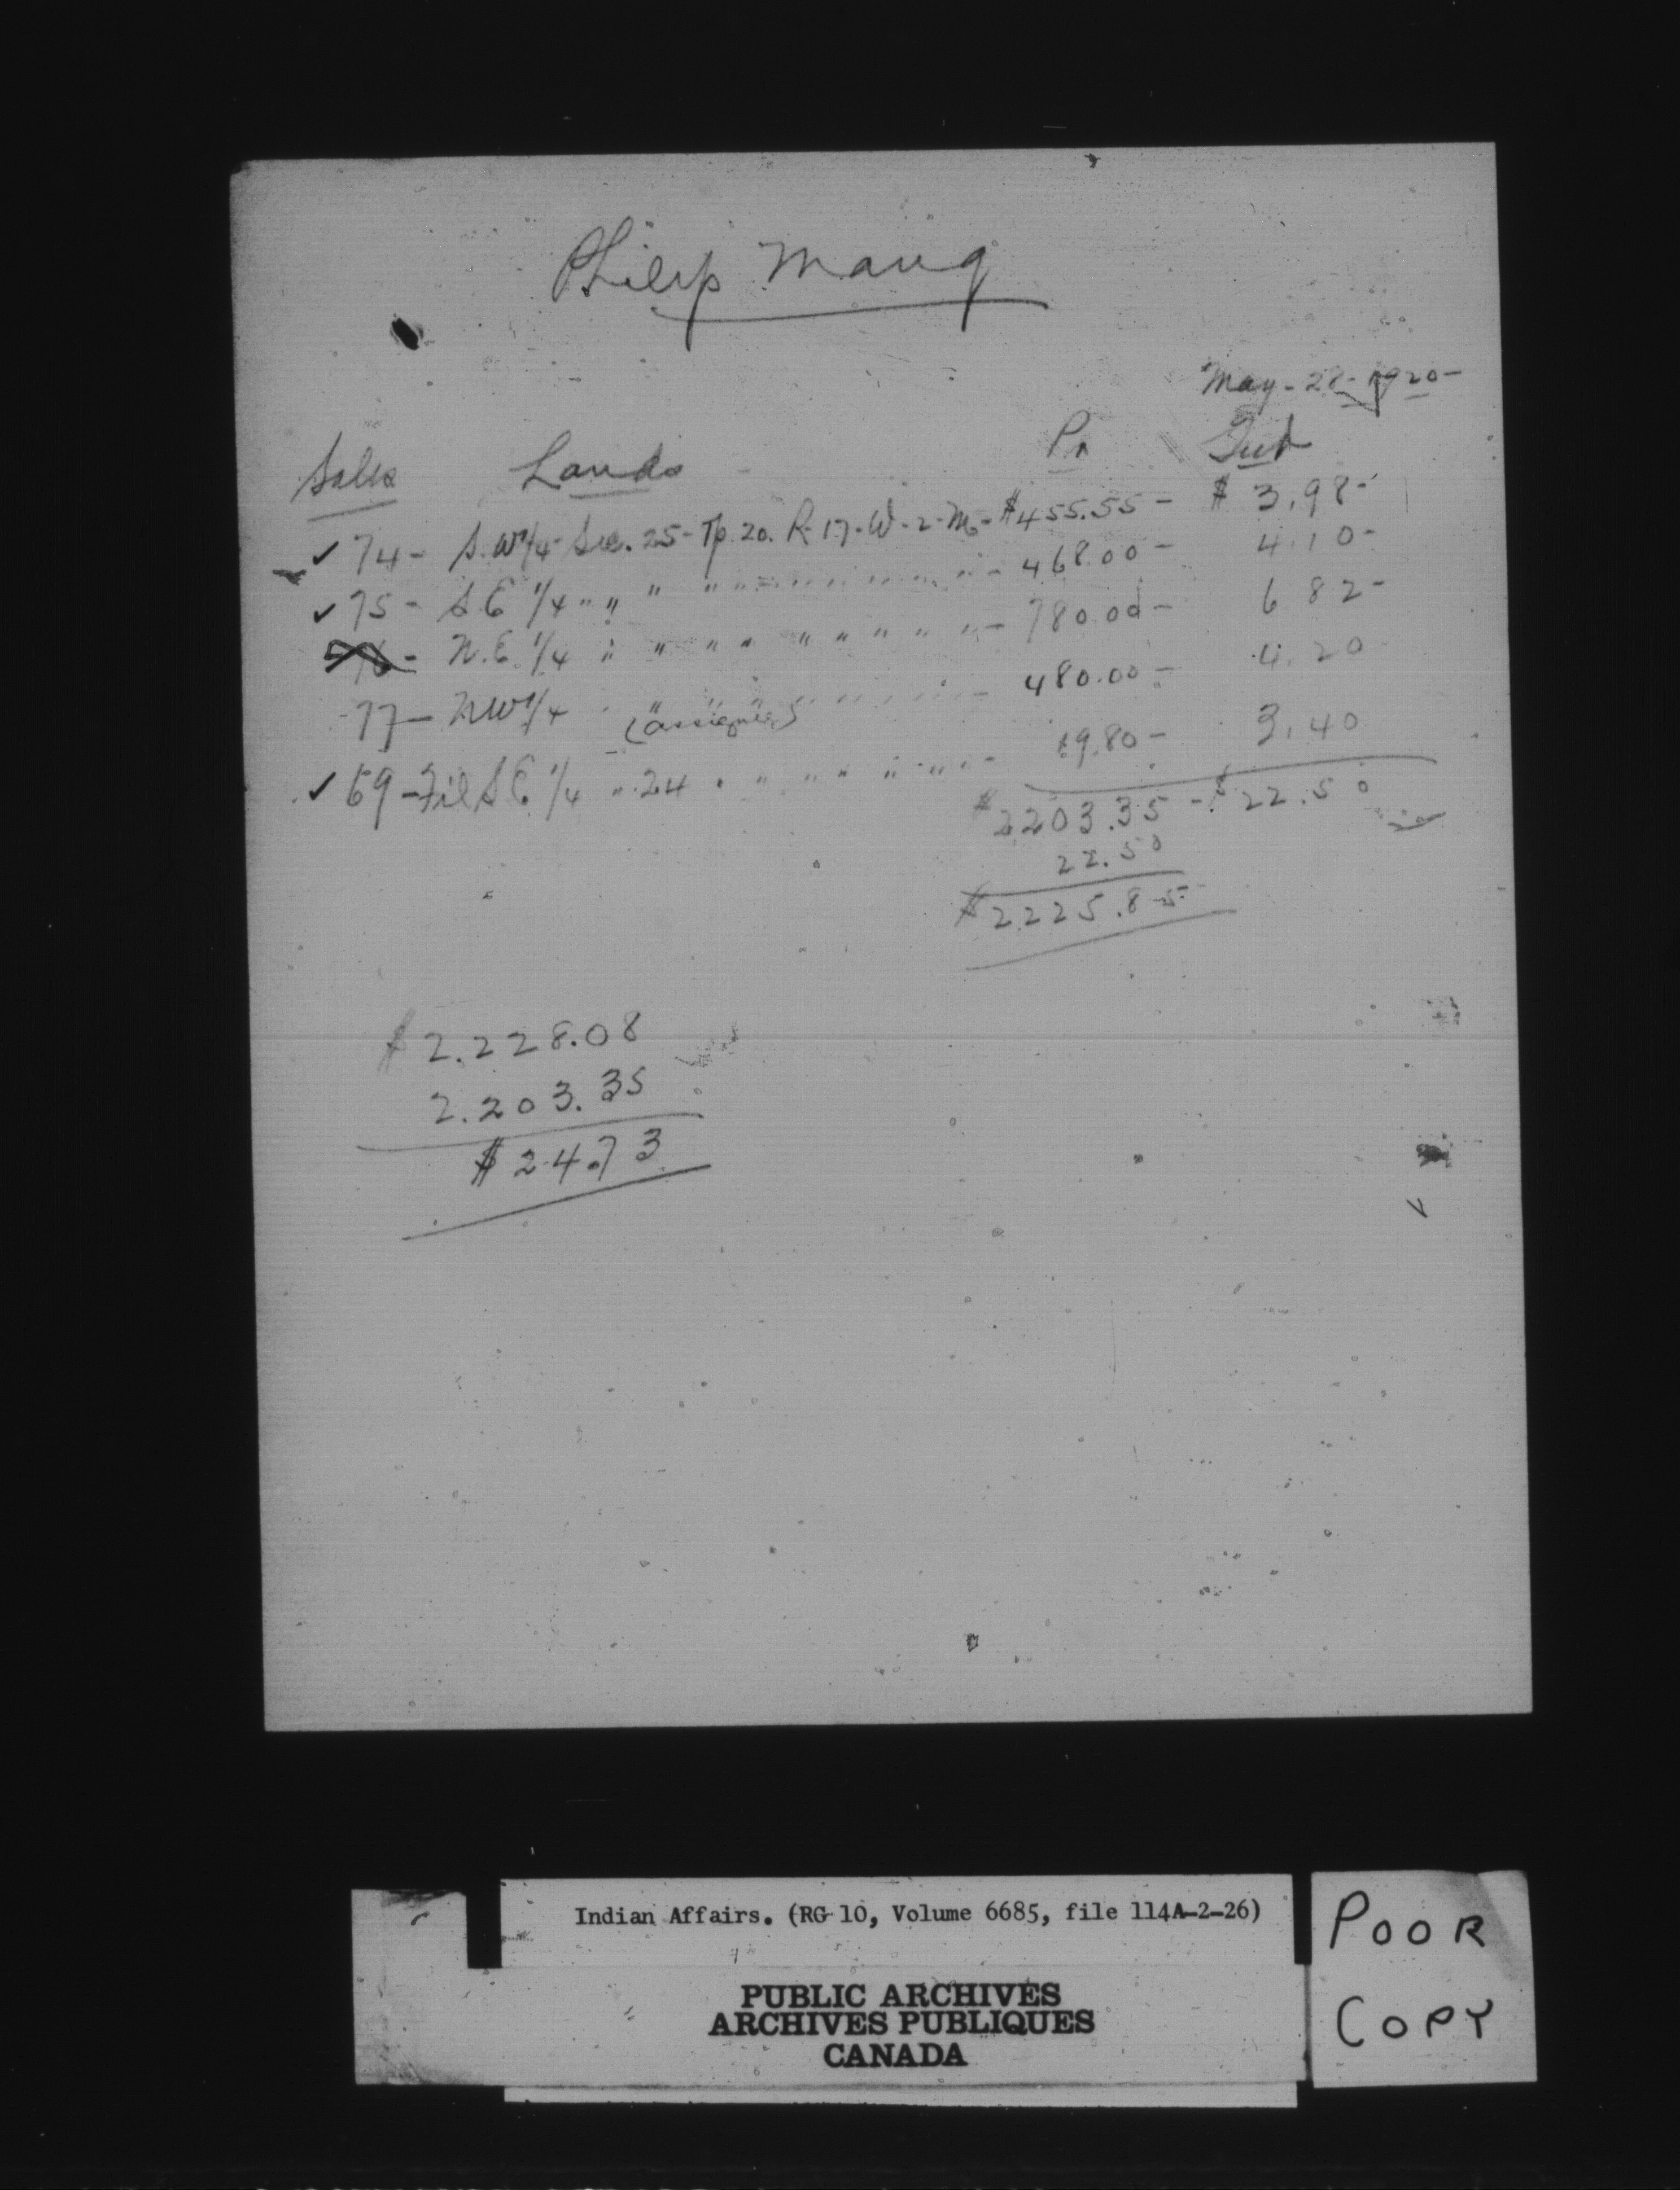 Philip Maug
May - 28 - 1920 -
Sales Lands Pr Int
✓ 74 - S.W 1/4 - Sec. 25 - Tp. 20. R - 17 - W - 2 - M - $455.55 - $ 3.98 -
✓ 75 - S.E 1/4 " " " " " " " " " " " - 468.00 - 4.10 -
76 - N.E. 1/4 " " " " " " " " " " - 780.00 - 6 82 -
77 - NW 1/4 " " " " " " " " - 480.00 - 4.20
(assigned)
✓ 69 - Fil S E. 1/4 " 24 " " " " " " " - 19.80 - 3.40
$2203.35 - $22.50
22.50
$2225.85
$2.228.08
2.203.35
$24.73
Indian Affairs. (RG 10, Volume 6685, file 114A-2-26)
PUBLIC ARCHIVES
ARCHIVES PUBLIQUES
CANADA
POOR
COPY